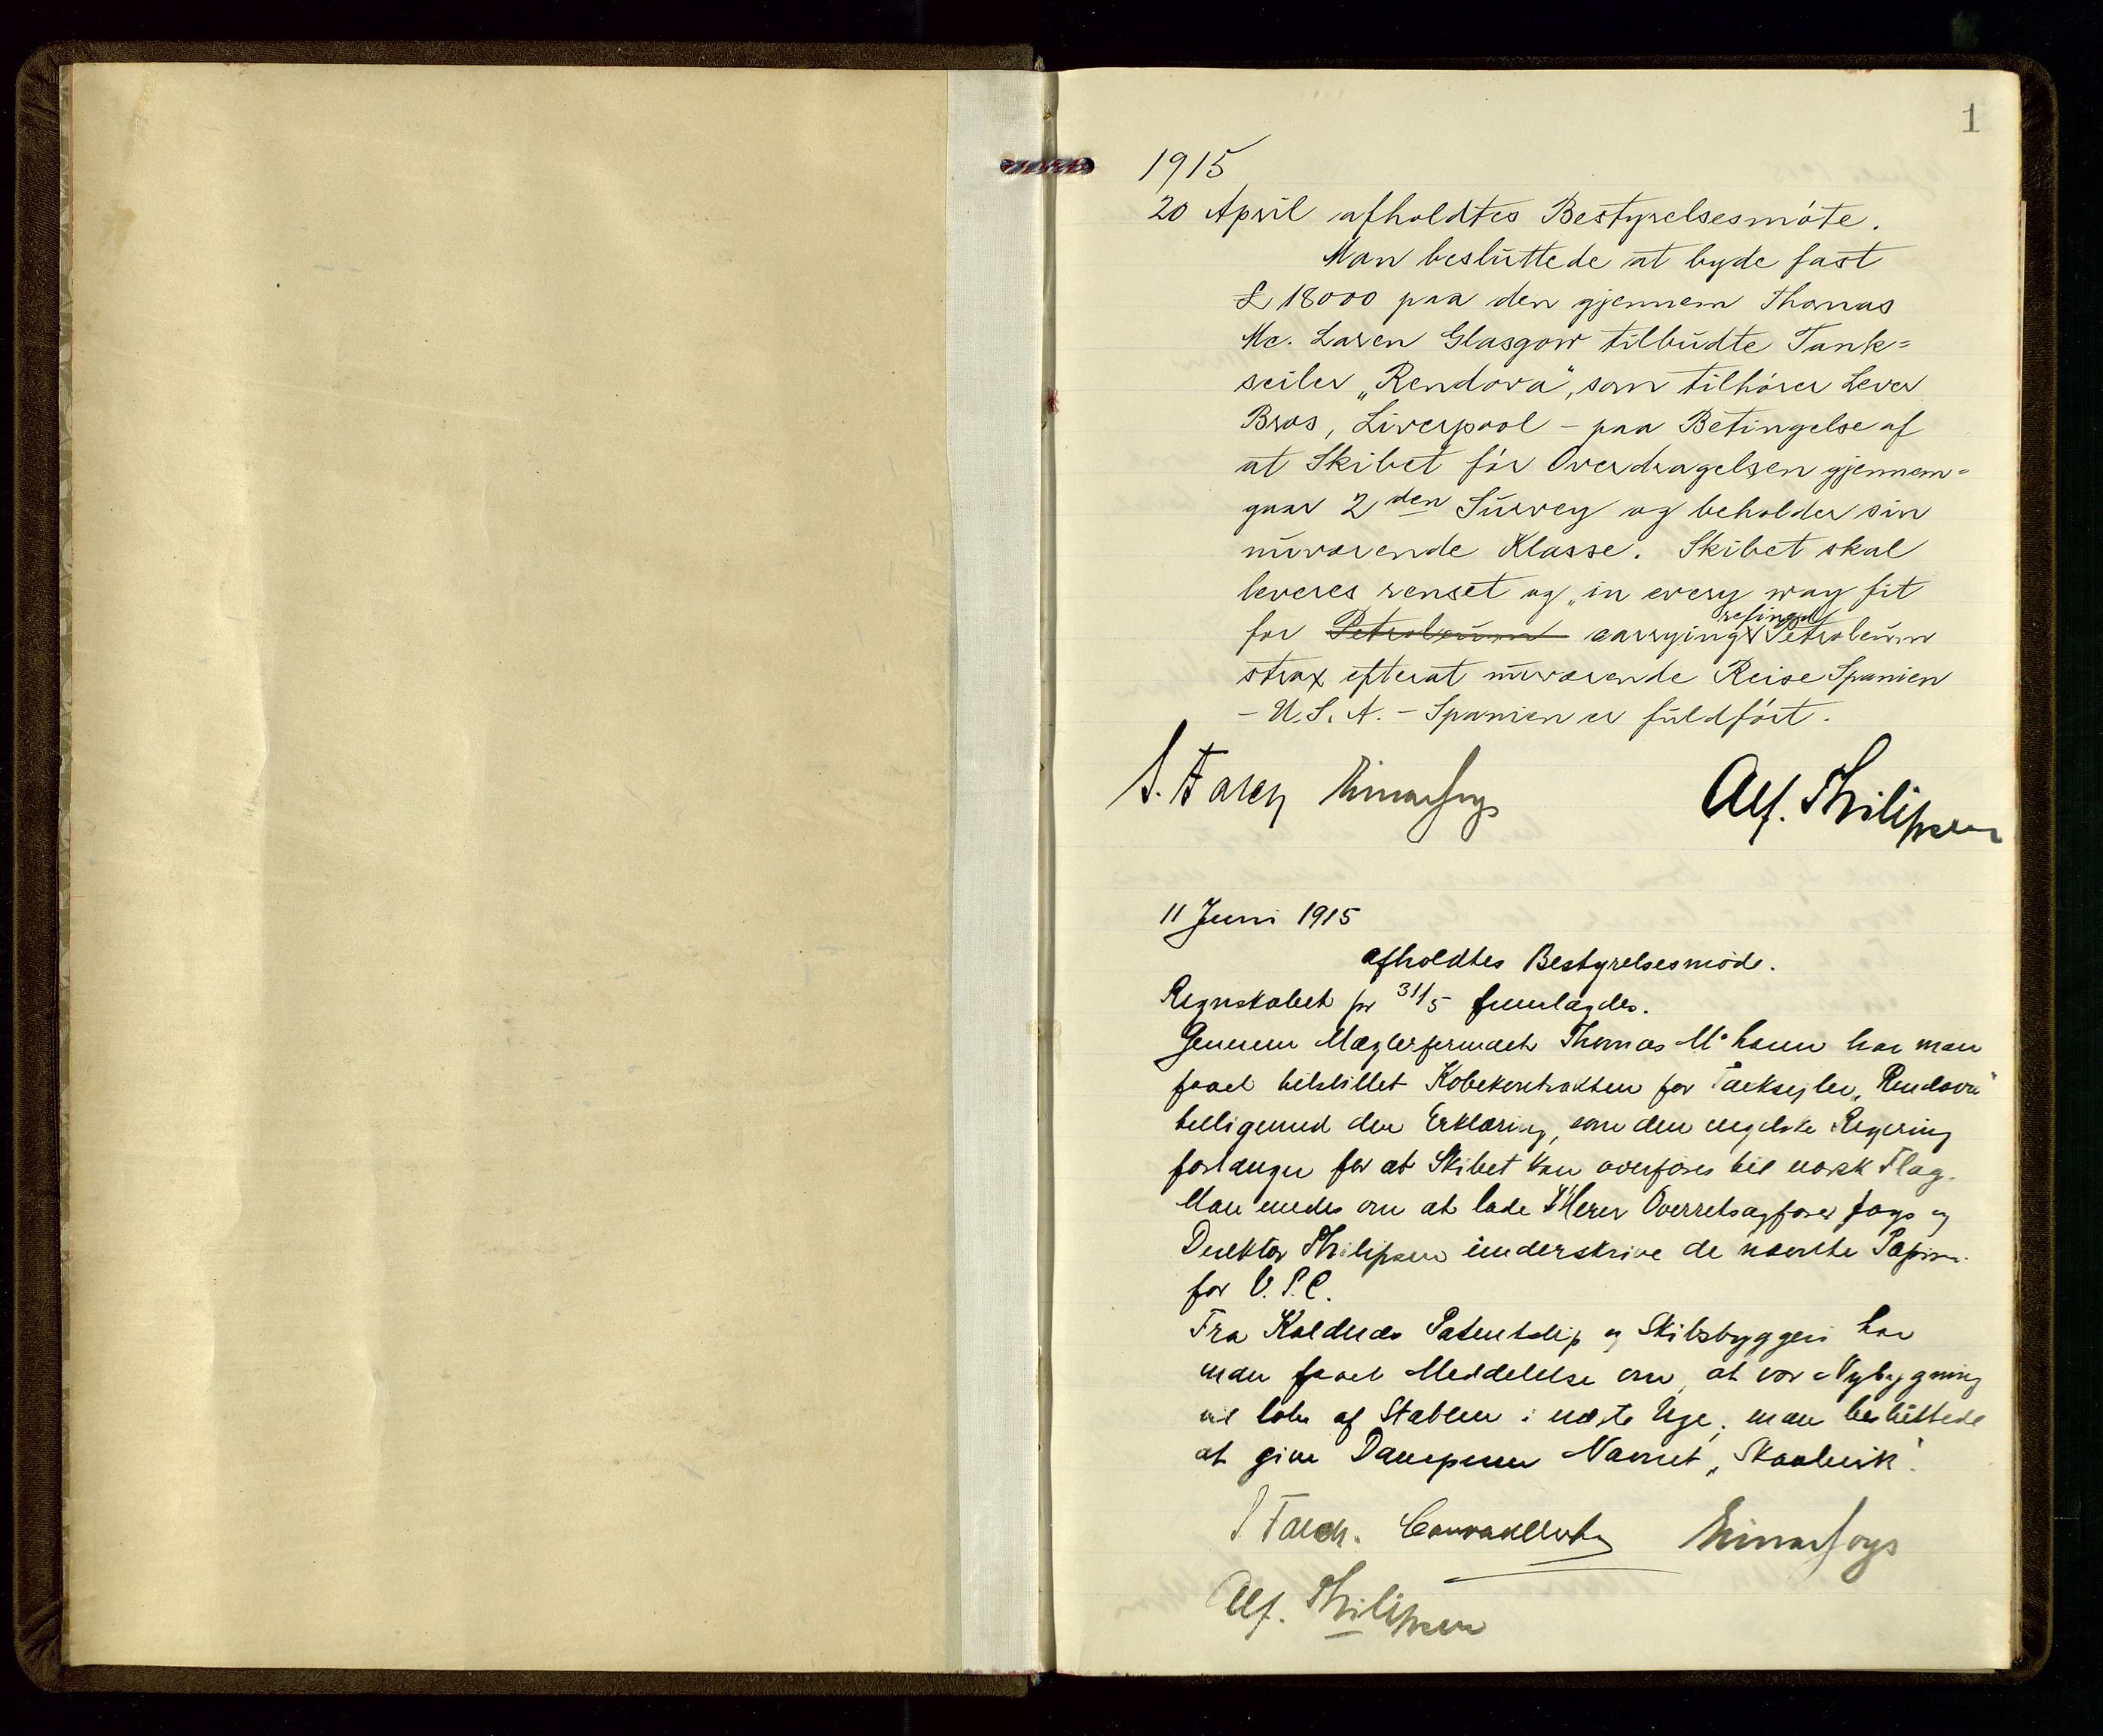 1
1915
20 April afholdtes Bestyrelsesmöte.
Man besluttede at byde fast
£ 18000 paa den gjennem Thomas
Mc. Laren Glasgow tilbudte Tank=
seiler „Rendova", som tilhörer Lever
Bros, Liverpool – paa Betingelse af
at Skibet för Overdragelsen gjennem=
gaar 2den Survey og beholder sin
nuværende Klasse. Skibet skal
leveres renset og „in every way fit
for Petroleum carrying refined Petroleum
strax efterat nuværende Reise Spanien
– U.S.A. – Spanien er fuldfört.
S. Farch Einar Joys Alf. Philipsen
11 Juni 1915
afholdtes Bestyrelsesmöde.
Regnskabet pr 31/5 fremlagdes.
Gennem Mæglerfirmaet Thomas Mc Laren har man
faaet tilstillet Köbekontrakten for Tanksejler „Rendova"
tilligemed den Erklæring, som den engelske Regering
forlanger for at Skibet kan overföres til norsk Flag.
Man enedes om at lade Herrer Overretssagförer Joys og
Direktör Philipsen underskrive de nævnte Papirer
for V.P.C.
Fra Kaldnes Patentslip og Skibsbyggeri har
man faaet Meddelelse om, at vor Nybygning
vil löbe af Stablen i næste Uge; man besluttede
at give Damperen Navnet „
S Farch. Einar Joys
Alf. Philipsen